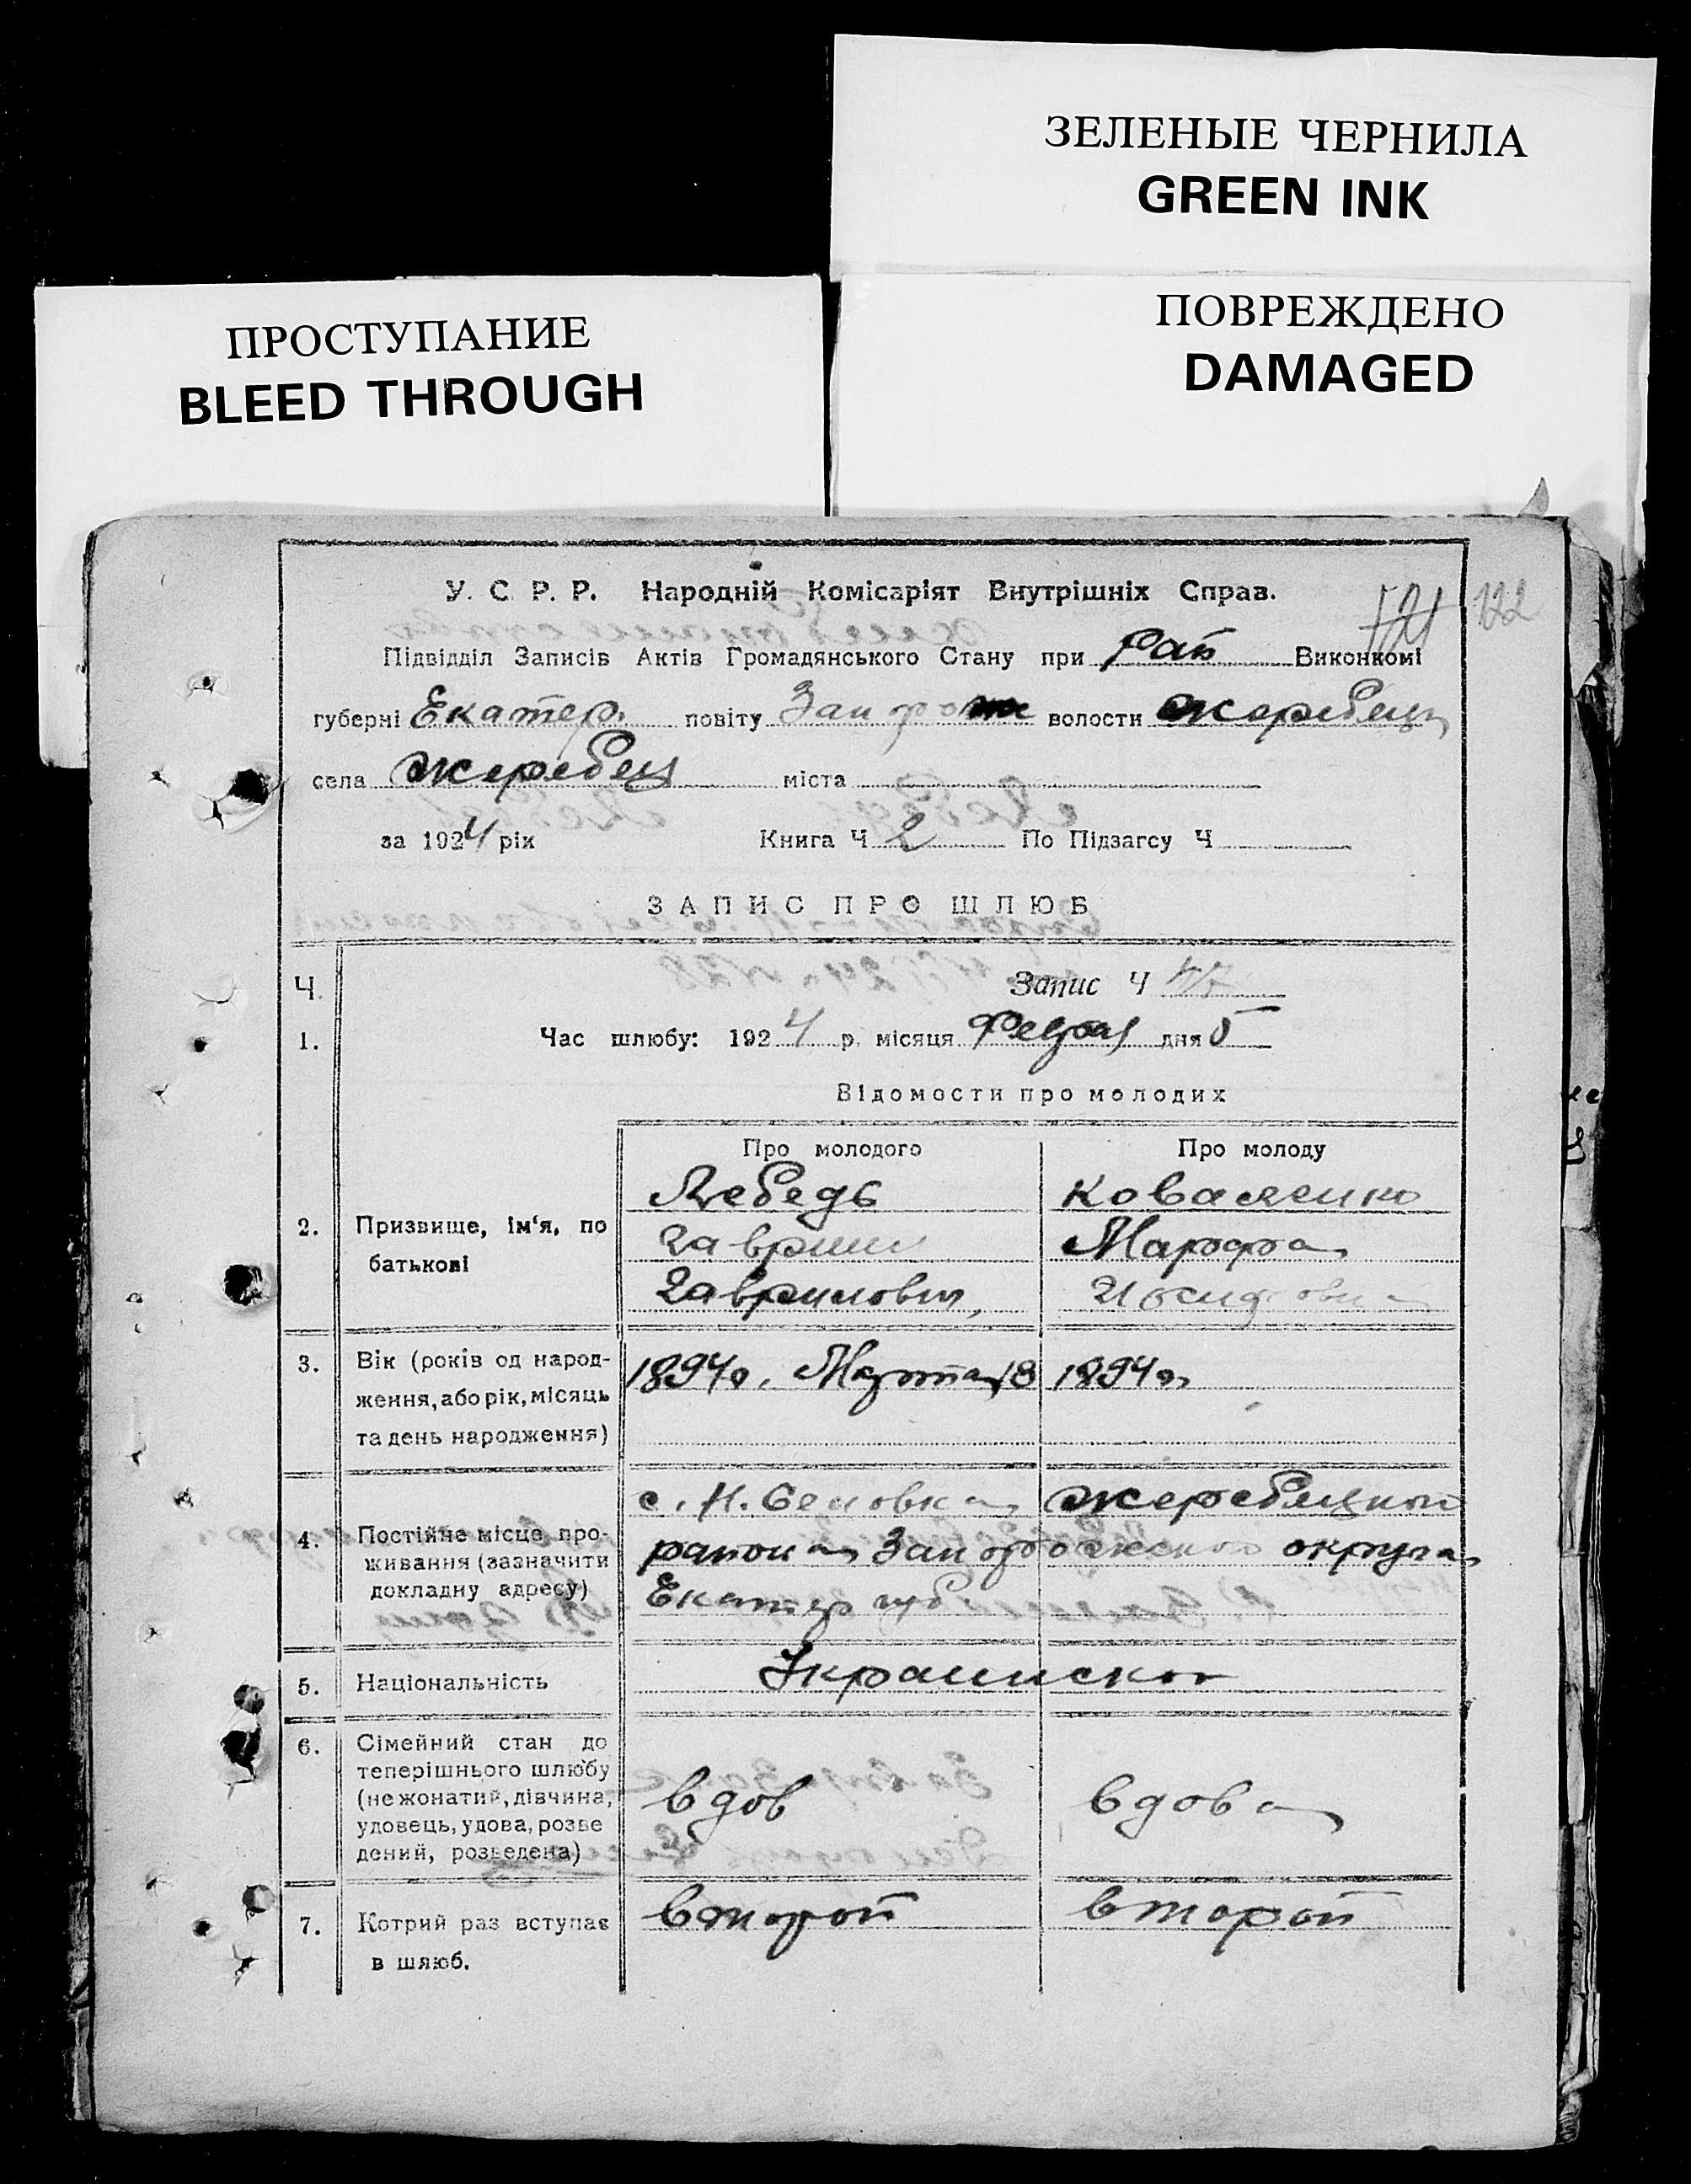 ЗЕЛЕНЫЕ ЧЕРНИЛА
GREEN INK
ПРОСТУПАНИЕ
BLEED THROUGH
ПОВРЕЖДЕНО
DAMAGED
У. С. Р. Р. Народній Комісаріят Внутрішніх Справ.
121 122
Підвідділ Записів Актів Громадянського Стану при Рай Виконкомі
губерні Екатер. повіту Запорож волости Жеребец
села Жеребец міста
за 1924 рік Книга Ч 2 По Підзагсу Ч
ЗАПИС ПРО ШЛЮБ
Ч. Запис Ч
1. Час шлюбу: 1924 р. місяця Февра дня 5
Відомости про молодих
Про молодого Про молоду
Лебедь Коваленко
2. Призвище, ім'я, по Гавриил Марфа
батькові Гаврилович,
3. Вік (років од народ- 1894г. Марта 18 1894г.
ження, або рік, місяць
та день народження)
с. Н. Жеребецкого
4. Постійне місце про- района Запорожского округа
живання (зазначити
докладну адресу) Екатер губ
5. Національність Украинской
6. Сімейний стан до
теперішнього шлюбу
(нежонатий, дівчина, вдов вдова
удовець, удова, розве
дений, розведена)
7. Котрий раз вступає второй второй
в шлюб.